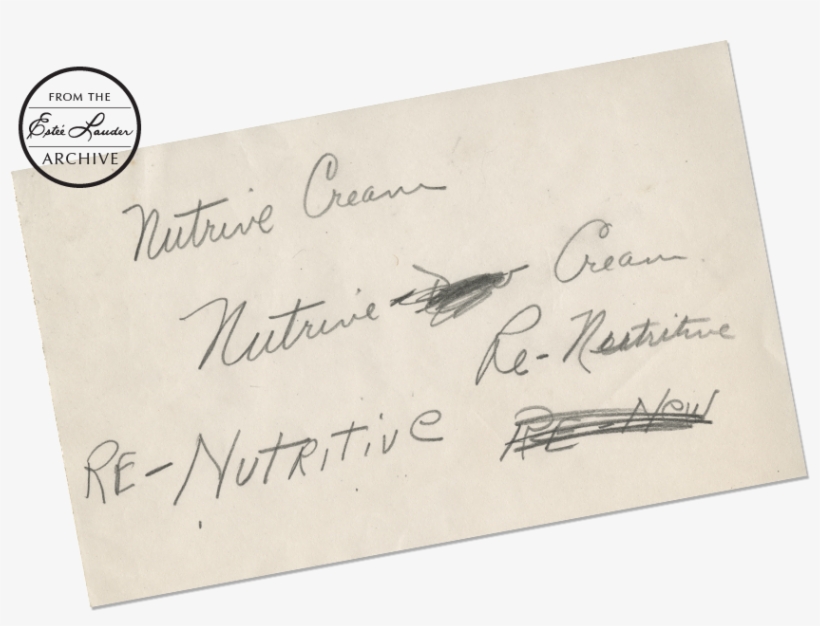 FROM THE
Estée Lauder
ARCHIVE
Nutrive Cream
Nutrive Cream
Re-Neutritive
RE-NUTRITIVE RE-New